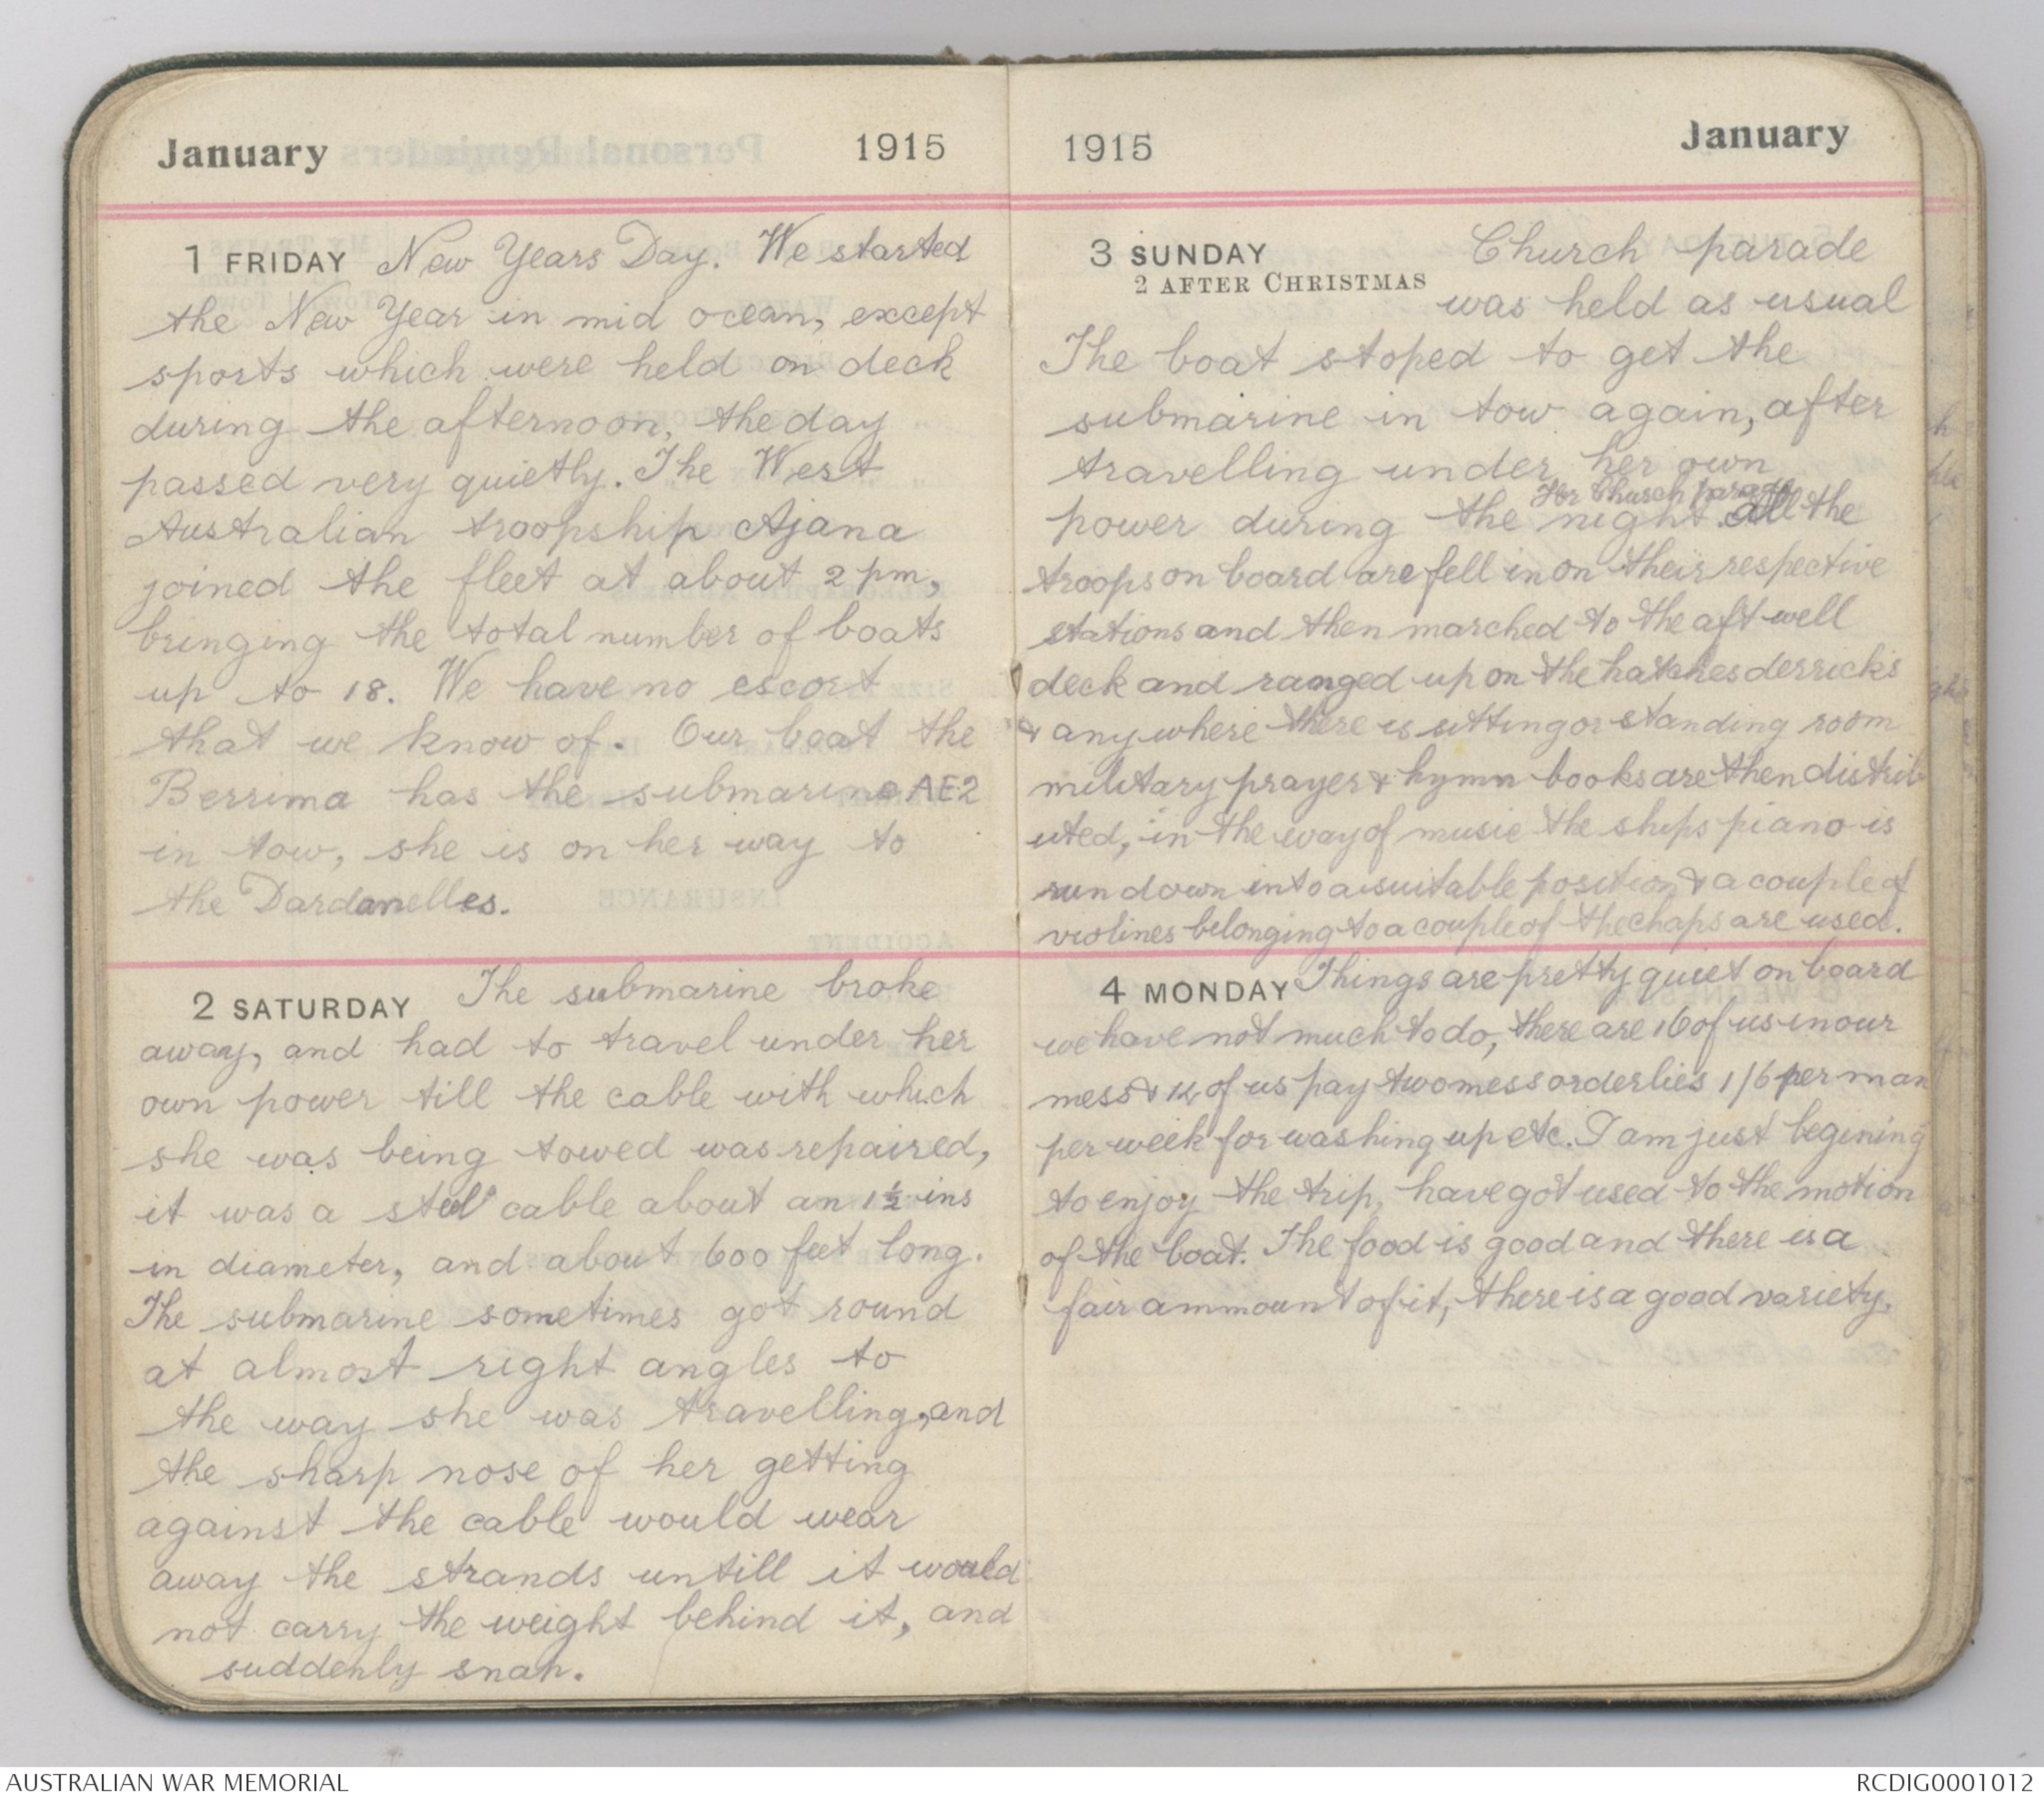 January 1915
1 FRIDAY New Years Day. We started
the New Year in mid ocean, except
sports which were held on deck
during the afternoon, the day
passed very quietly. The West
Australian troopship Ajana
joined the fleet at about 2 pm,
bringing the total number of boats
up to 18. We have no escort
that we know of. Our boat the
Berrima has the submarine AE2
in tow, she is on her way to
the Dardanelles.
2 SATURDAY The submarine broke
away, and had to travel under her
own power till the cable with which
she was being towed was repaired,
it was a steel cable about an 1½ ins
in diameter, and about 600 feet long.
The submarine sometimes got round
at almost right angles to
the way she was travelling, and
the sharp nose of her getting
against the cable would wear
away the strands untill it would
not carry the weight behind it, and
suddenly snap.
1915 January
3 SUNDAY Church parade
2 AFTER CHRISTMAS was held as usual
The boat stoped to get the
submarine in tow again, after
travelling under her own
For Church parade
power during the night. all the
troops on board are fell in on their respective
stations and then marched to the aft well
deck and ranged up on the hatches derricks
& anywhere there is sitting or standing room
military prayer & hymn books are then distrib
uted, in the way of music the ships piano is
run down into a suitable position & a couple of
violines belonging to a couple of the chaps are used.
4 MONDAY Things are pretty quiet on board
we have not much to do, there are 16 of us in our
mess & 14 of us pay two mess orderlies 1/6 per man
per week for washing up etc. I am just begining
to enjoy the trip, have got used to the motion
of the boat. The food is good and there is a
fair ammount of it, there is a good variety.
AUSTRALIAN WAR MEMORIAL
RCDIG0001012